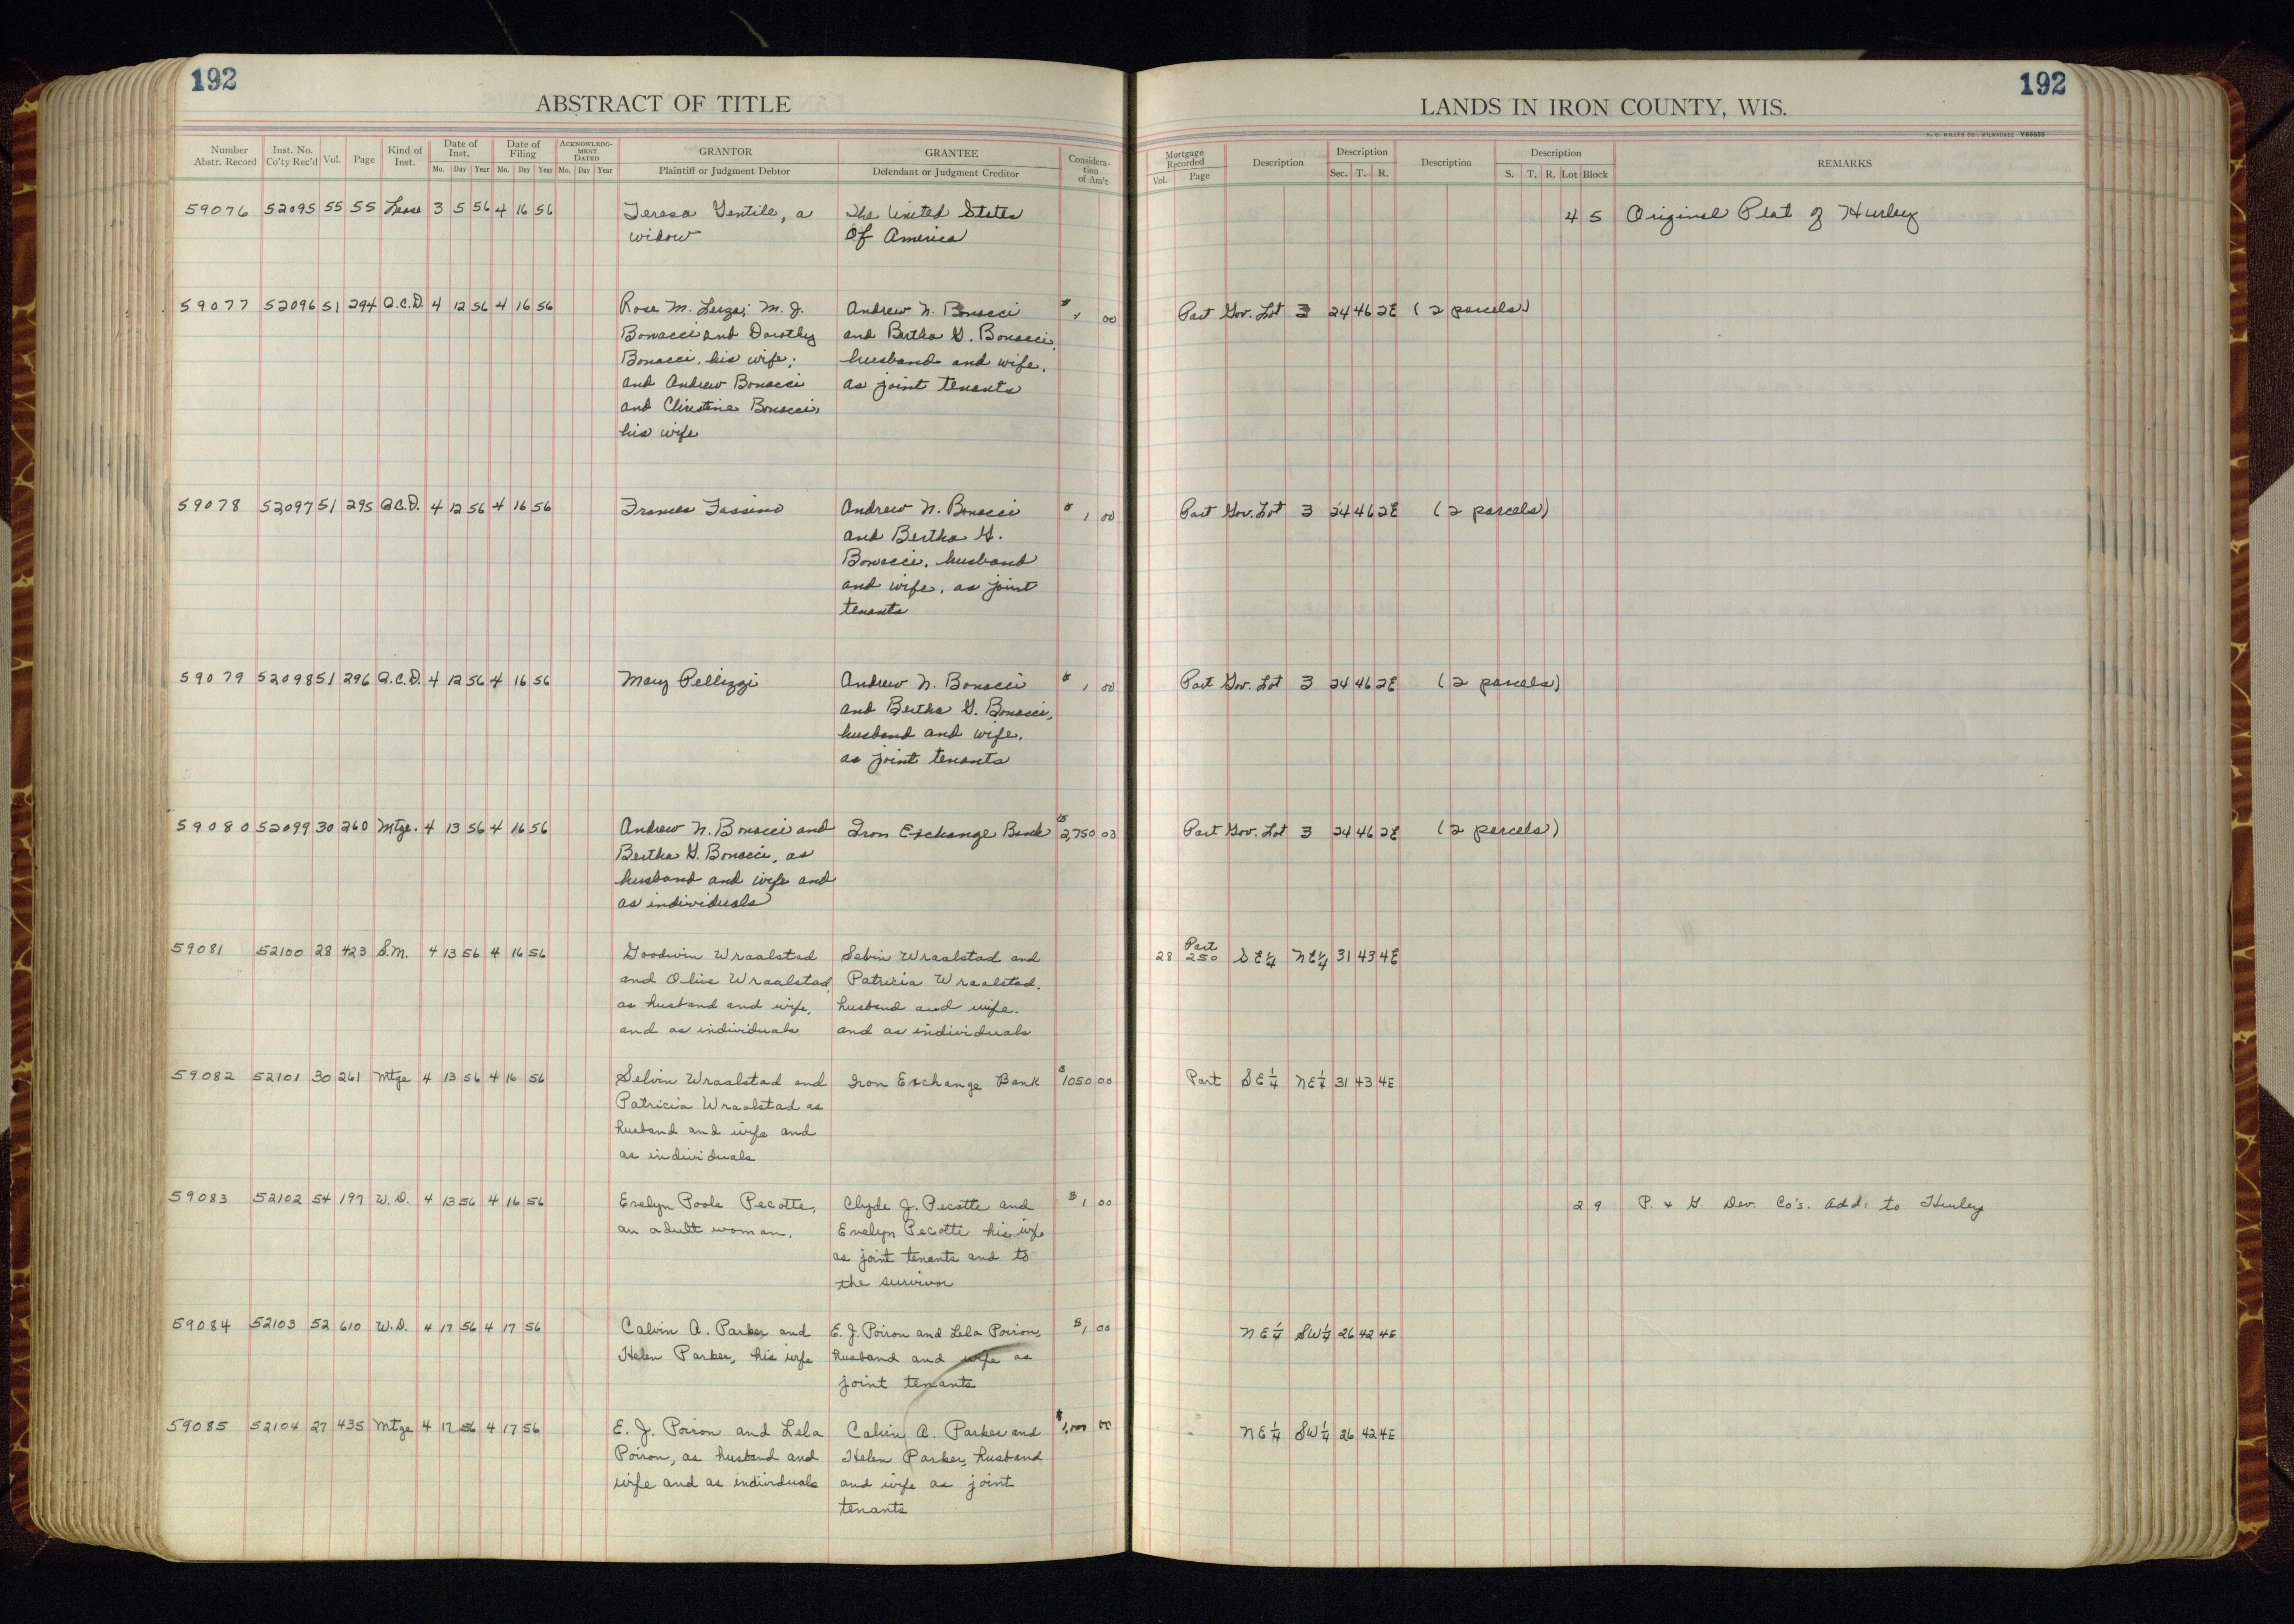 192
192
ABSTRACT OF TITLE
LANDS IN IRON COUNTY, WIS.
H. C. MILLER CO., MILWAUKEE Y66695
Number Abstr. Record
Inst. No. Co'ty Rec'd
Vol.
Page
Kind of Inst.
Date of Inst.
Mo. Day Year
Date of Filing
Mo. Day Year
ACKNOWLEDGMENT DATED
Mo. Day Year
GRANTOR
Plaintiff or Judgment Debtor
GRANTEE
Defendant or Judgment Creditor
Consideration of Am't
Mortgage Recorded
Vol. Page
Description
Description
Sec. T. R.
Description
Description
S. T. R. Lot Block
REMARKS
59076 52095 55 55 Lease 3 5 56 4 16 56 Teresa Gentile, a The United States 4 5 Original Plat of Hurley
widow Of America
59077 52096 51 294 Q.C.D. 4 12 56 4 16 56 Rose M. M. J. Andrew N. Bonacci $1 00 Part Gov. Lot 3 24 46 2E (2 parcels)
Bonacci and Dorothy and Bertha G. Bonacci,
Bonacci, his wife; husband and wife,
and Andrew Bonacci as joint tenants
and Christine Bonacci,
his wife
59078 52097 51 295 Q.C.D. 4 12 56 4 16 56 Frances Fassino Andrew N. Bonacci $1 00 Part Gov. Lot 3 24 46 2E (2 parcels)
and Bertha G.
Bonacci, husband
and wife, as joint
tenants
59079 52098 51 296 Q.C.D. 4 12 56 4 16 56 Mary Pellizzi Andrew N. Bonacci $1 00 Part Gov. Lot 3 24 46 2E (2 parcels)
and Bertha G. Bonacci,
husband and wife,
as joint tenants
59080 52099 30 260 Mtge. 4 13 56 4 16 56 Andrew N. Bonacci and Iron Exchange Bank $2,750 03 Part Gov. Lot 3 24 46 2E (2 parcels)
Bertha G. Bonacci, as
husband and wife and
as individuals
59081 52100 28 423 S.M. 4 13 56 4 16 56 Goodwin Wraalstad Selvin Wraalstad and 28 250 Part SE¼ NE¼ 31 43 4E
and Olive Wraalstad, Patricia Wraalstad,
as husband and wife, husband and wife.
and as individuals and as individuals
59082 52101 30 261 Mtge 4 13 56 4 16 56 Selvin Wraalstad and Iron Exchange Bank $1050 00 Part SE¼ NE¼ 31 43 4E
Patricia Wraalstad as
husband and wife and
as individuals
59083 52102 54 197 W.D. 4 13 56 4 16 56 Evelyn Poole Pecotte, Clyde J. Pecotte and $1 00 2 9 P. & G. Dev. Co's. Add. to Hurley
an adult woman. Evelyn Pecotte his wife
as joint tenants and to
the survivor
59084 52103 52 610 W.D. 4 17 56 4 17 56 Calvin A. Parker and E. J. Poiron and Lela Poiron, $1 00 NE¼ SW¼ 26 42 4E
Helen Parker, his wife husband and wife as
joint tenants
59085 52104 27 435 Mtge 4 17 56 4 17 56 E. J. Poiron and Lela Calvin A. Parker and 00 NE¼ SW¼ 26 42 4E
Poiron, as husband and Helen Parker, husband
wife and as individuals and wife as joint
tenants